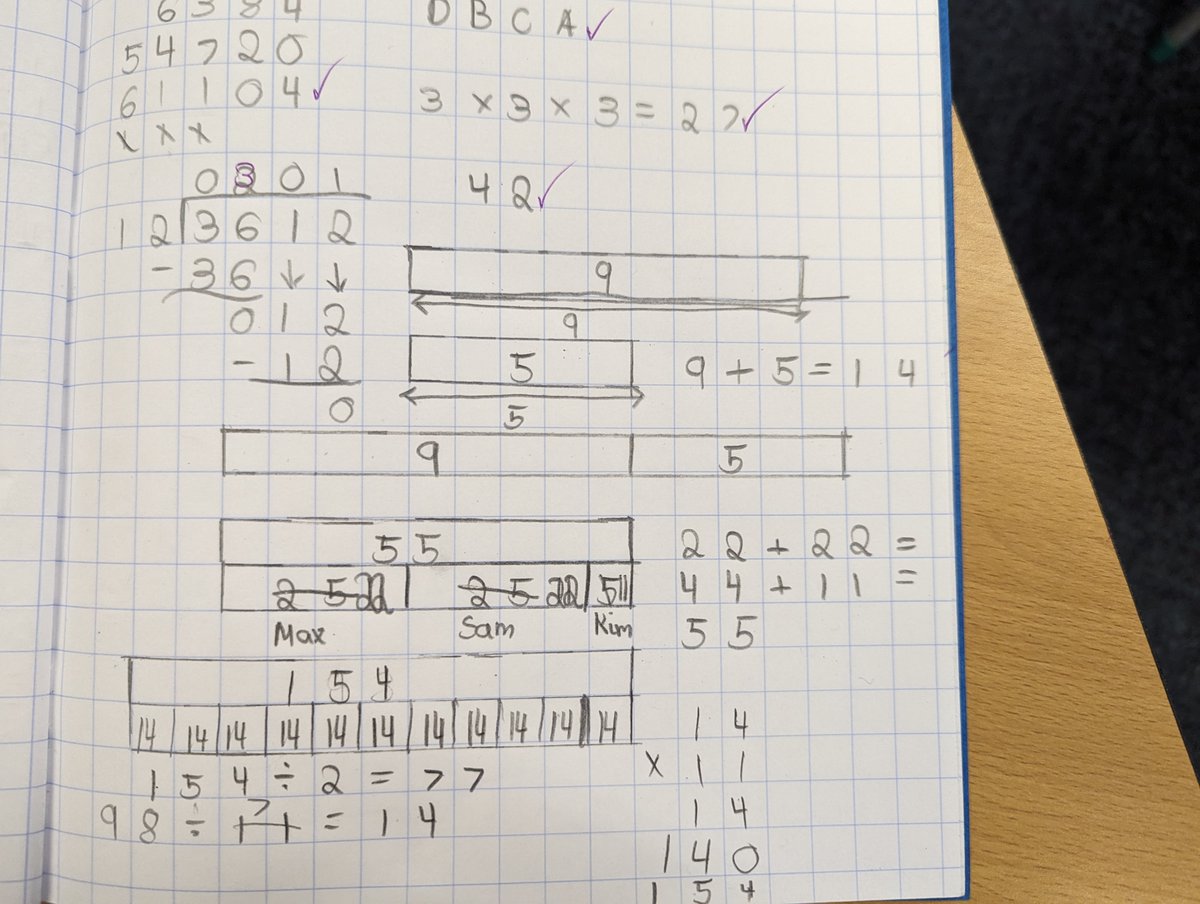 6 3 8 4
5 4 7 2 0
6 1 1 0 4 ✓
x x x
0 3 0 1
1 2 3 6 1 2
- 3 6 ↓ ↓
0 1 2
- 1 2
0
D B C A ✓
3 × 3 × 3 = 2 7 ✓
4 2 ✓
9
9
5
5
9 + 5 = 1 4
9 5
5 5
2 5 22 2 5 22 5 11
Max Sam Kim
2 2 + 2 2 =
4 4 + 1 1 =
5 5
1 5 4
14 14 14 14 14 14 14 14 14 14 14
1 5 4 ÷ 2 = 7 7
7
9 8 ÷ 1 1 = 1 4
1 4
x 1 1
1 4
1 4 0
1 5 4